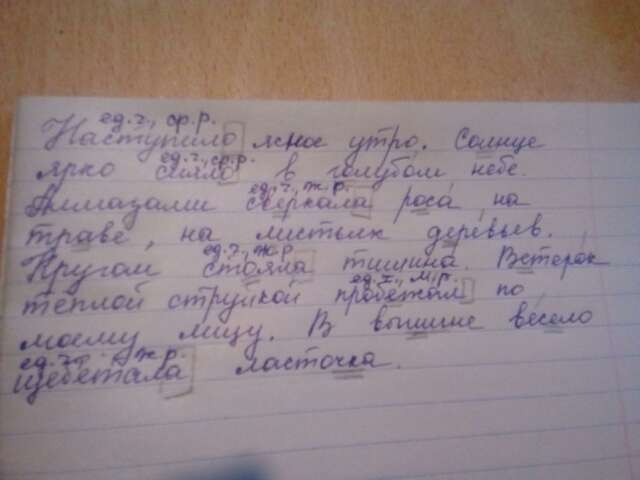 ед.ч., ср.р.
Наступило ясное утро. Солнце
ед.ч., ср.р.
ярко сияло в голубом небе.
ед.ч., ж.р.
Алмазами сверкала роса на
траве, на листьях деревьев.
ед.ч., ж.р.
Кругом стояла тишина. Ветерок
ед.ч., м.р.
тёплой струйкой пробежал по
моему лицу. В вышине весело
ед.ч., ж.р.
щебетала ласточка.